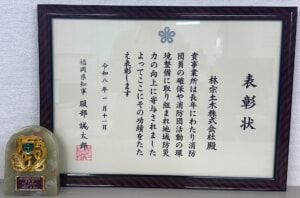 表彰状
林宗土木株式会社殿
貴事業所は長年にわたり消防
団員の確保や消防団活動の環
境整備に取り組まれ地域防災
力の向上に寄与されました
よってここにその功績をたた
え表彰します
令和八年一月十一日
福岡県知事 服部誠太郎